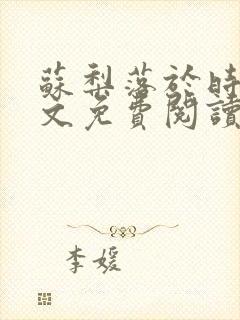 蘇梨落於時
文免費閱讀
李媛